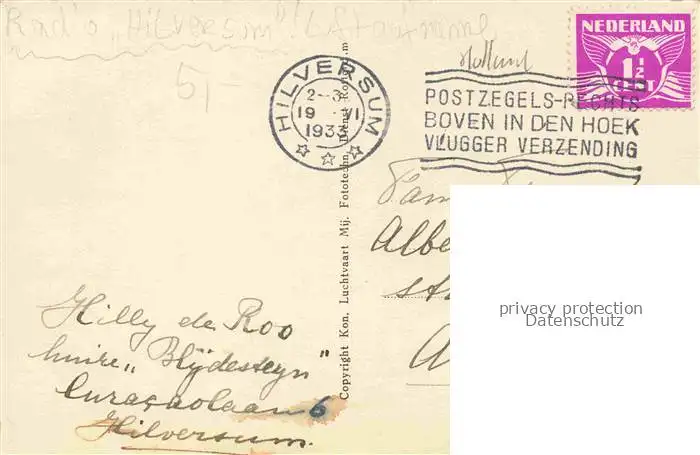 Radio „Hilversum"
5,-
Holland
NEDERLAND
1½
CENT
HILVERSUM
2-3
19 VI
1933
POSTZEGELS-RECHTS
BOVEN IN DEN HOEK
VLUGGER VERZENDING
Fam
Albe
st
A
Copyright Kon. Luchtvaart Mij. Fototechn. Dienst
Hilly de Roo
huize „Blijdesteyn"
Curaçaolaan 6
Hilversum.
privacy protection
Datenschutz